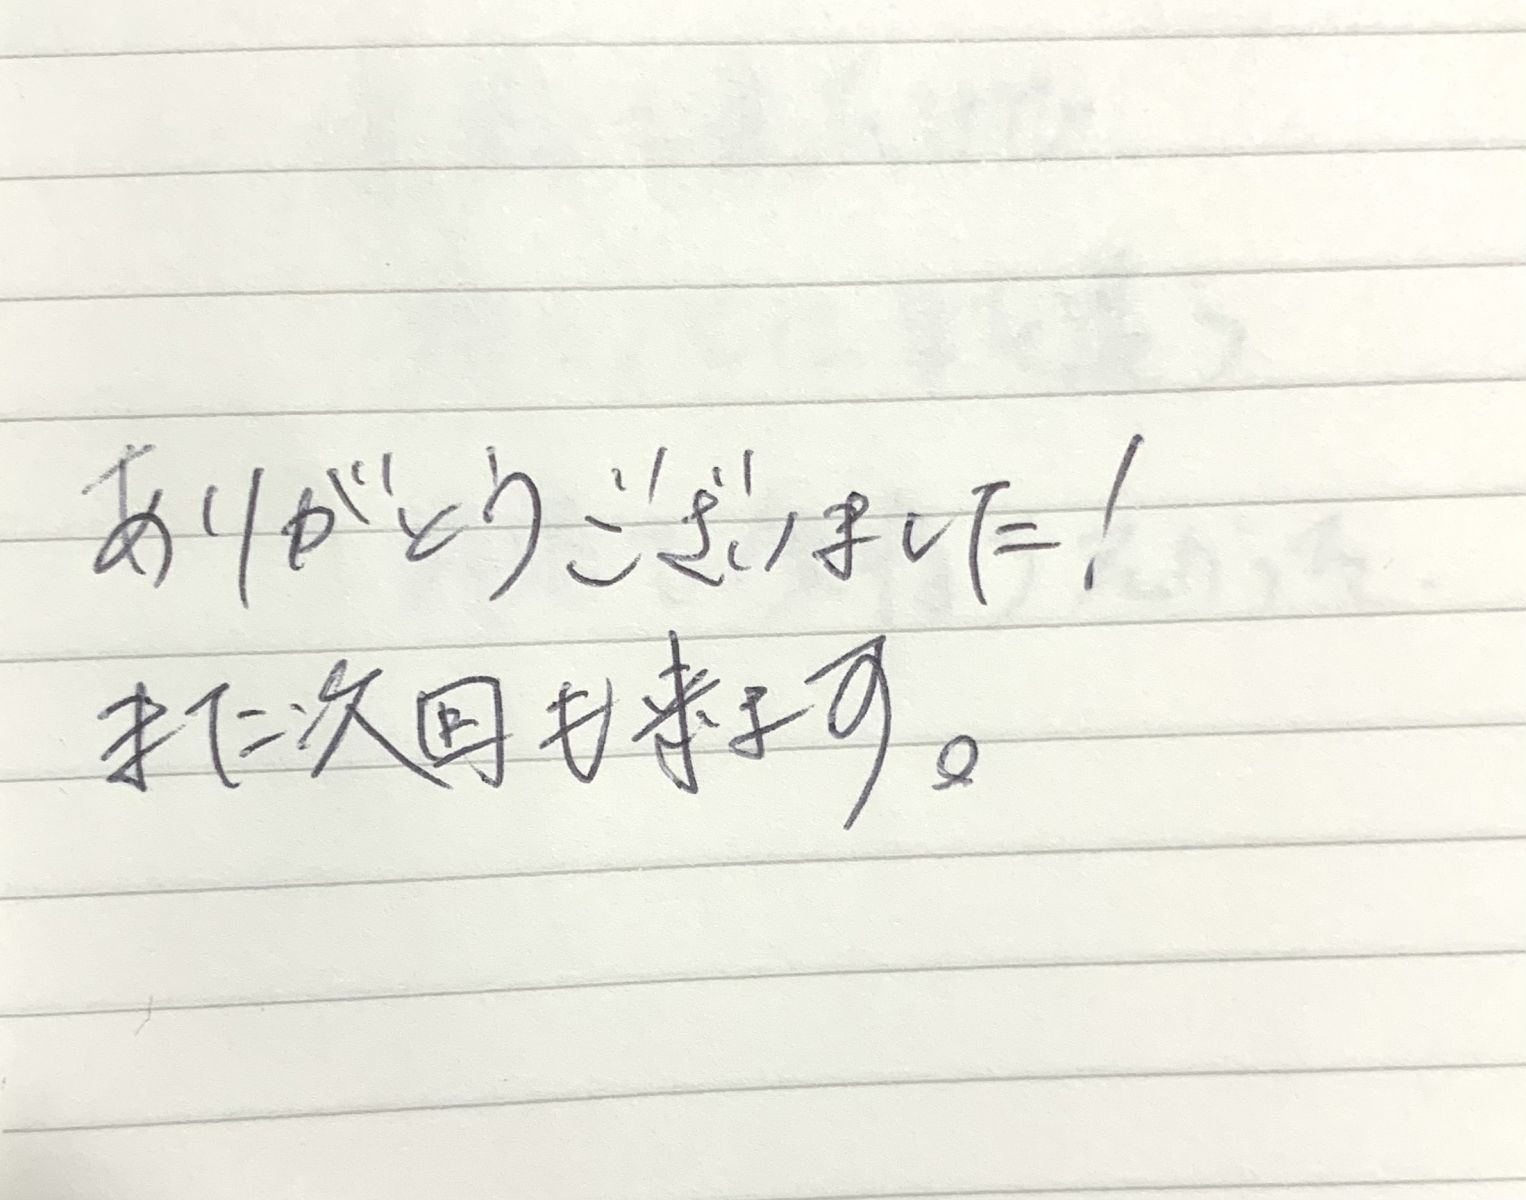 ありがとうございました!
また次回も来ます。